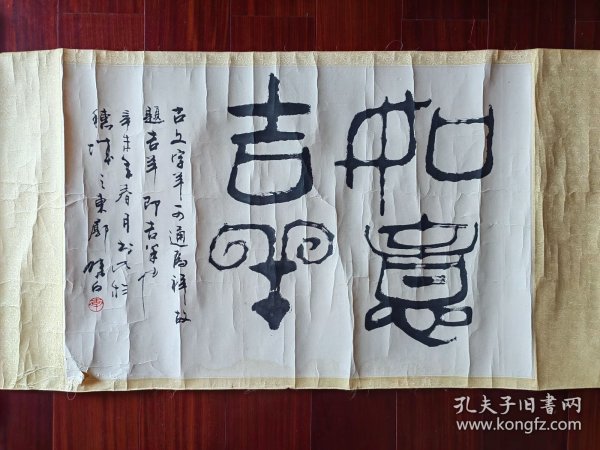 如意
吉羊
古文字羊可通为祥故
题吉羊即吉羊也
辛未年春月书于
穗城之东郊
孔夫子旧书网
www.kongfz.com